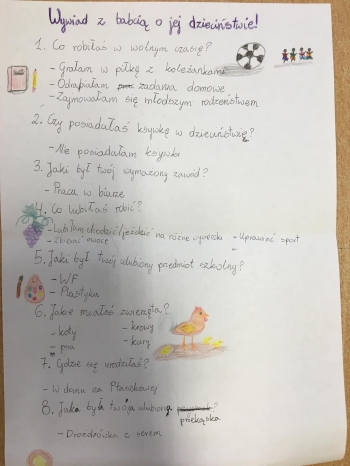 Wywiad z babcią o jej dzieciństwie!
1. Co robiłaś w wolnym czasie?
- Grałam w piłkę z koleżankami
- Odrabiałam zadania domowe
- Zajmowałam się młodszym rodzeństwem
2. Czy posiadałaś ksywkę w dzieciństwie?
- Nie posiadałam ksywki
3. Jaki był twój wymarzony zawód?
- Praca w biurze
4. Co lubiłaś robić?
- Lubiłam chodzić/jeździć na różne wycieczki - Uprawiać sport
- Zbierać owoce
5. Jaki był twój ulubiony przedmiot szkolny?
- WF
- Plastyka
6. Jakie miałaś zwierzęta?
- koty - krowy
- psa - kury
7. Gdzie się urodziłaś?
- W domu na Ptaszkowej
8. Jaka była twoja ulubiona ?
przekąska
- Drożdżówka z serem